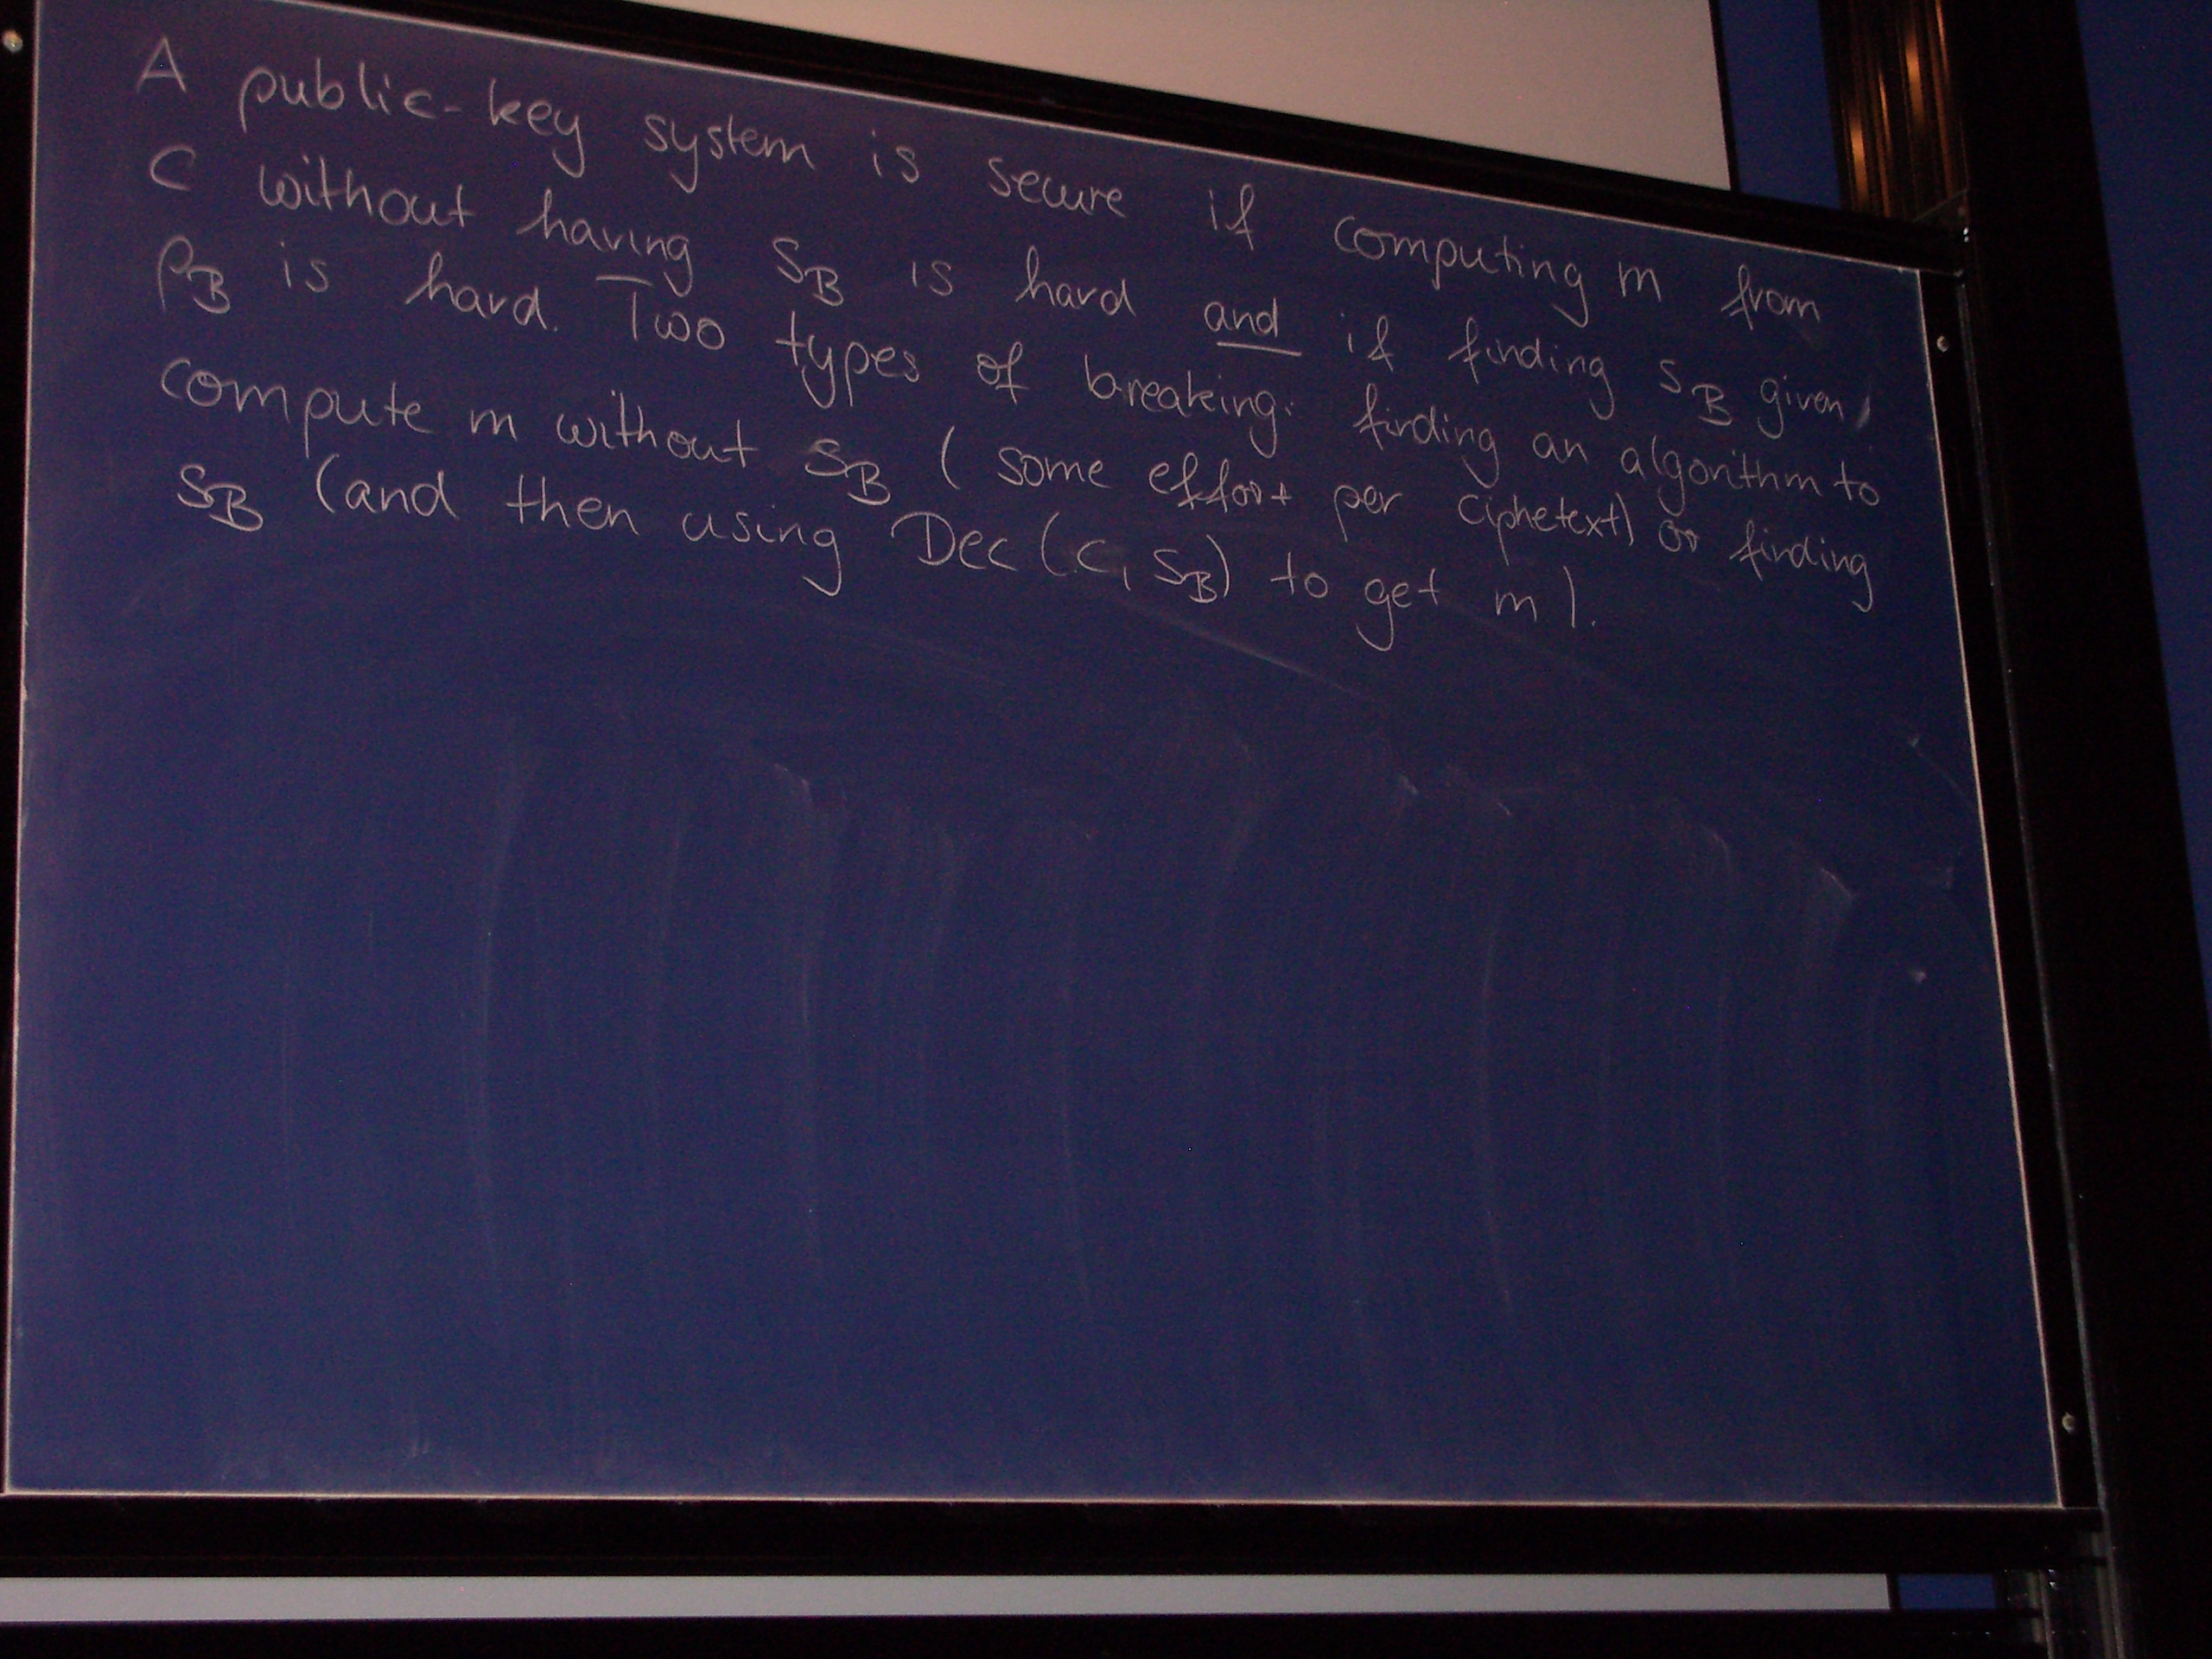 A public-key system is secure if computing m from
C without having S_B is hard and if finding S_B given
P_B is hard. Two types of breaking: finding an algorithm to
compute m without S_B (some effort per ciphetext) or finding
S_B (and then using Dec(C, S_B) to get m).